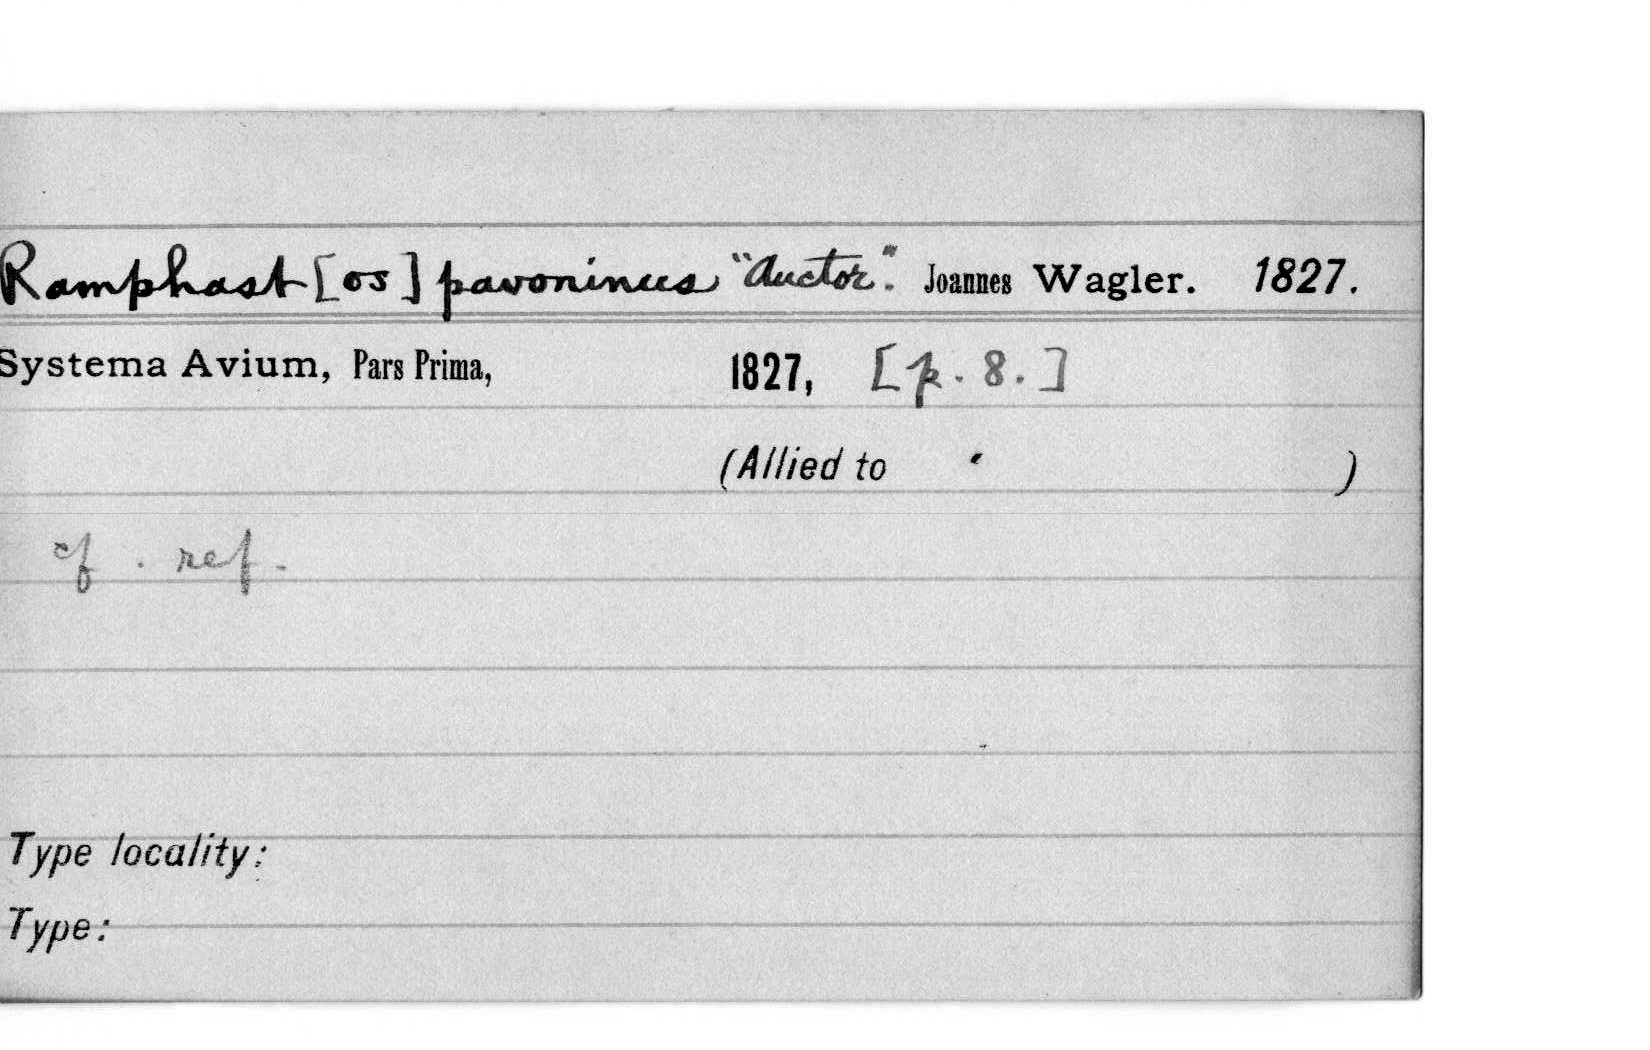 Ramphast[os] pavoninus "Auctor." Joannes Wagler. 1827.
Systema Avium, Pars Prima, 1827, [p. 8.]
(Allied to )
cf. ref.
Type locality:
Type: